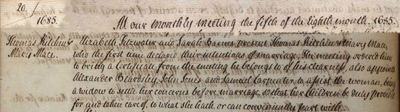 20 /
1685. At our monthly meeting the fifth of the eighth month. 1685.
Thomas Kitchin & Elizabeth Fitzwater and Sarah present Thomas Kitchin & Mary Mace,
Mary Mace. who the first time declare their intentions of marriage. The meeting orders him
to bring a Certificate from the meeting he belongs to of his clearness, and do appoint
Alexander Beardsley, John Jones and Samuel Carpenter, to assist the woman, being
a widow to settle her concerns before marriage, so that her children be duly provided
for and taken care of, is what she hath or can conveniently part with.